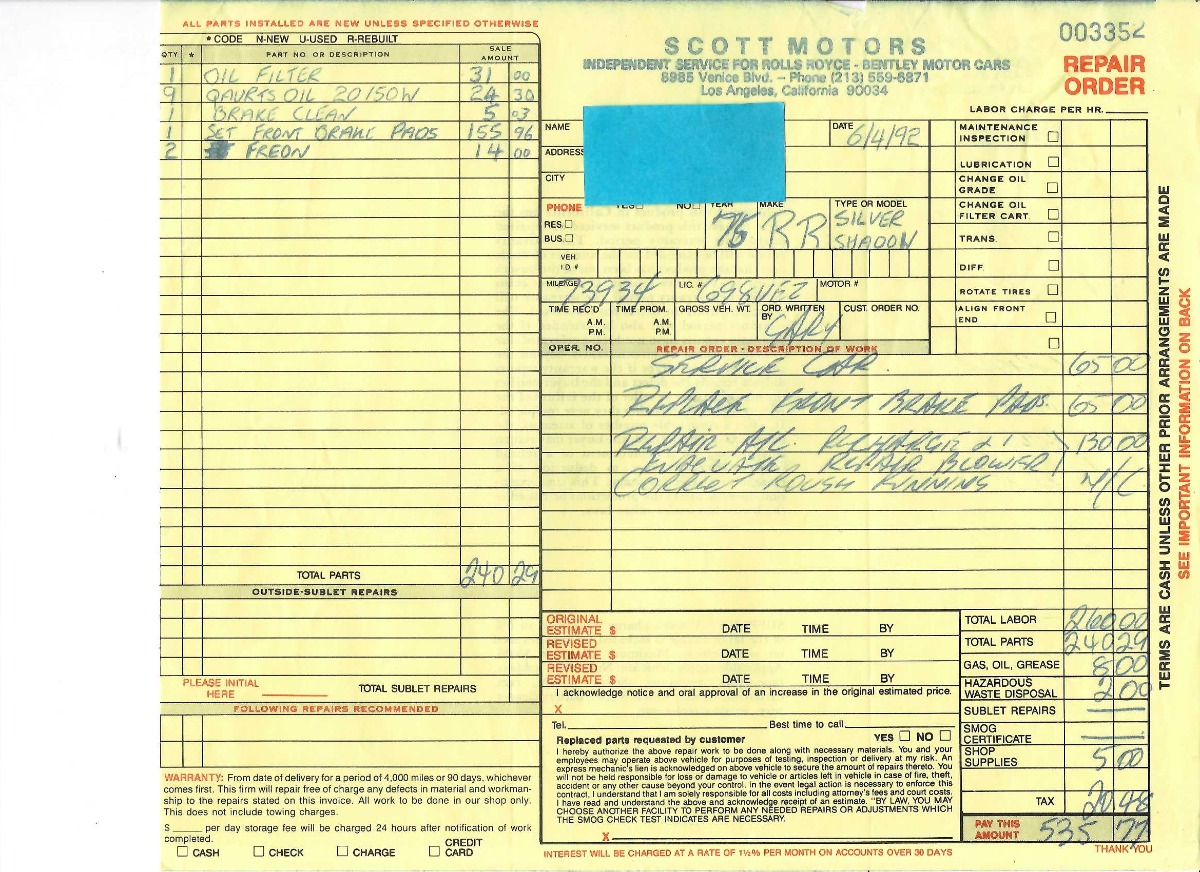 ALL PARTS INSTALLED ARE NEW UNLESS SPECIFIED OTHERWISE
* CODE N-NEW U-USED R-REBUILT
QTY * PART NO. OR DESCRIPTION SALE AMOUNT
1 OIL FILTER 31 00
9 QAURTS OIL 20/50W 24 30
1 BRAKE CLEAN 5 03
1 SET FRONT BRAKE PADS 155 96
2 FREON 14 00
TOTAL PARTS 240 29
OUTSIDE-SUBLET REPAIRS
PLEASE INITIAL HERE ________ TOTAL SUBLET REPAIRS
FOLLOWING REPAIRS RECOMMENDED
WARRANTY: From date of delivery for a period of 4,000 miles or 90 days, whichever
comes first. This firm will repair free of charge any defects in material and workman-
ship to the repairs stated on this invoice. All work to be done in our shop only.
This does not include towing charges.
$ _____ per day storage fee will be charged 24 hours after notification of work
completed.
CASH CHECK CHARGE CREDIT CARD
003352
SCOTT MOTORS
INDEPENDENT SERVICE FOR ROLLS ROYCE - BENTLEY MOTOR CARS
8985 Venice Blvd. - Phone (213) 559-6871
Los Angeles, California 90034
REPAIR
ORDER
LABOR CHARGE PER HR.
NAME
DATE 6/4/92
ADDRESS
CITY
PHONE YES NO YEAR MAKE TYPE OR MODEL
RES.
BUS.
75 RR SILVER
SHADOW
VEH.
I.D. #
MILEAGE 73934 LIC. # 698VEZ MOTOR #
TIME REC'D TIME PROM. GROSS VEH. WT. ORD. WRITTEN BY CUST. ORDER NO.
A.M. A.M. GARY
P.M. P.M.
MAINTENANCE
INSPECTION
LUBRICATION
CHANGE OIL
GRADE
CHANGE OIL
FILTER CART.
TRANS.
DIFF.
ROTATE TIRES
ALIGN FRONT
END
OPER. NO. REPAIR ORDER - DESCRIPTION OF WORK
SERVICE CAR. 65 00
REPLACE FRONT BRAKE PADS. 65 00
REPAIR A/C. RECHARGE 130 00
EVACUATE REPAIR BLOWER
CORRECT ROUGH RUNNING N/C
ORIGINAL
ESTIMATE $ DATE TIME BY
REVISED
ESTIMATE $ DATE TIME BY
REVISED
ESTIMATE $ DATE TIME BY
I acknowledge notice and oral approval of an increase in the original estimated price.
X
Tel. Best time to call
Replaced parts requested by customer YES NO
I hereby authorize the above repair work to be done along with necessary materials. You and your
employees may operate above vehicle for purposes of testing, inspection or delivery at my risk. An
express mechanic's lien is acknowledged on above vehicle to secure the amount of repairs thereto. You
will not be held responsible for loss or damage to vehicle or articles left in vehicle in case of fire, theft,
accident or any other cause beyond your control. In the event legal action is necessary to enforce this
contract, I understand that I am solely responsible for all costs including attorney's fees and court costs.
I have read and understand the above and acknowledge receipt of an estimate. "BY LAW, YOU MAY
CHOOSE ANOTHER FACILITY TO PERFORM ANY NEEDED REPAIRS OR ADJUSTMENTS WHICH
THE SMOG CHECK TEST INDICATES ARE NECESSARY.
X
INTEREST WILL BE CHARGED AT A RATE OF 1½% PER MONTH ON ACCOUNTS OVER 30 DAYS
TOTAL LABOR 260 00
TOTAL PARTS 240 29
GAS, OIL, GREASE 8 00
HAZARDOUS
WASTE DISPOSAL 2 00
SUBLET REPAIRS
SMOG
CERTIFICATE
SHOP
SUPPLIES 5 00
TAX 20 48
PAY THIS
AMOUNT 535 77
THANK YOU
TERMS ARE CASH UNLESS OTHER PRIOR ARRANGEMENTS ARE MADE
SEE IMPORTANT INFORMATION ON BACK